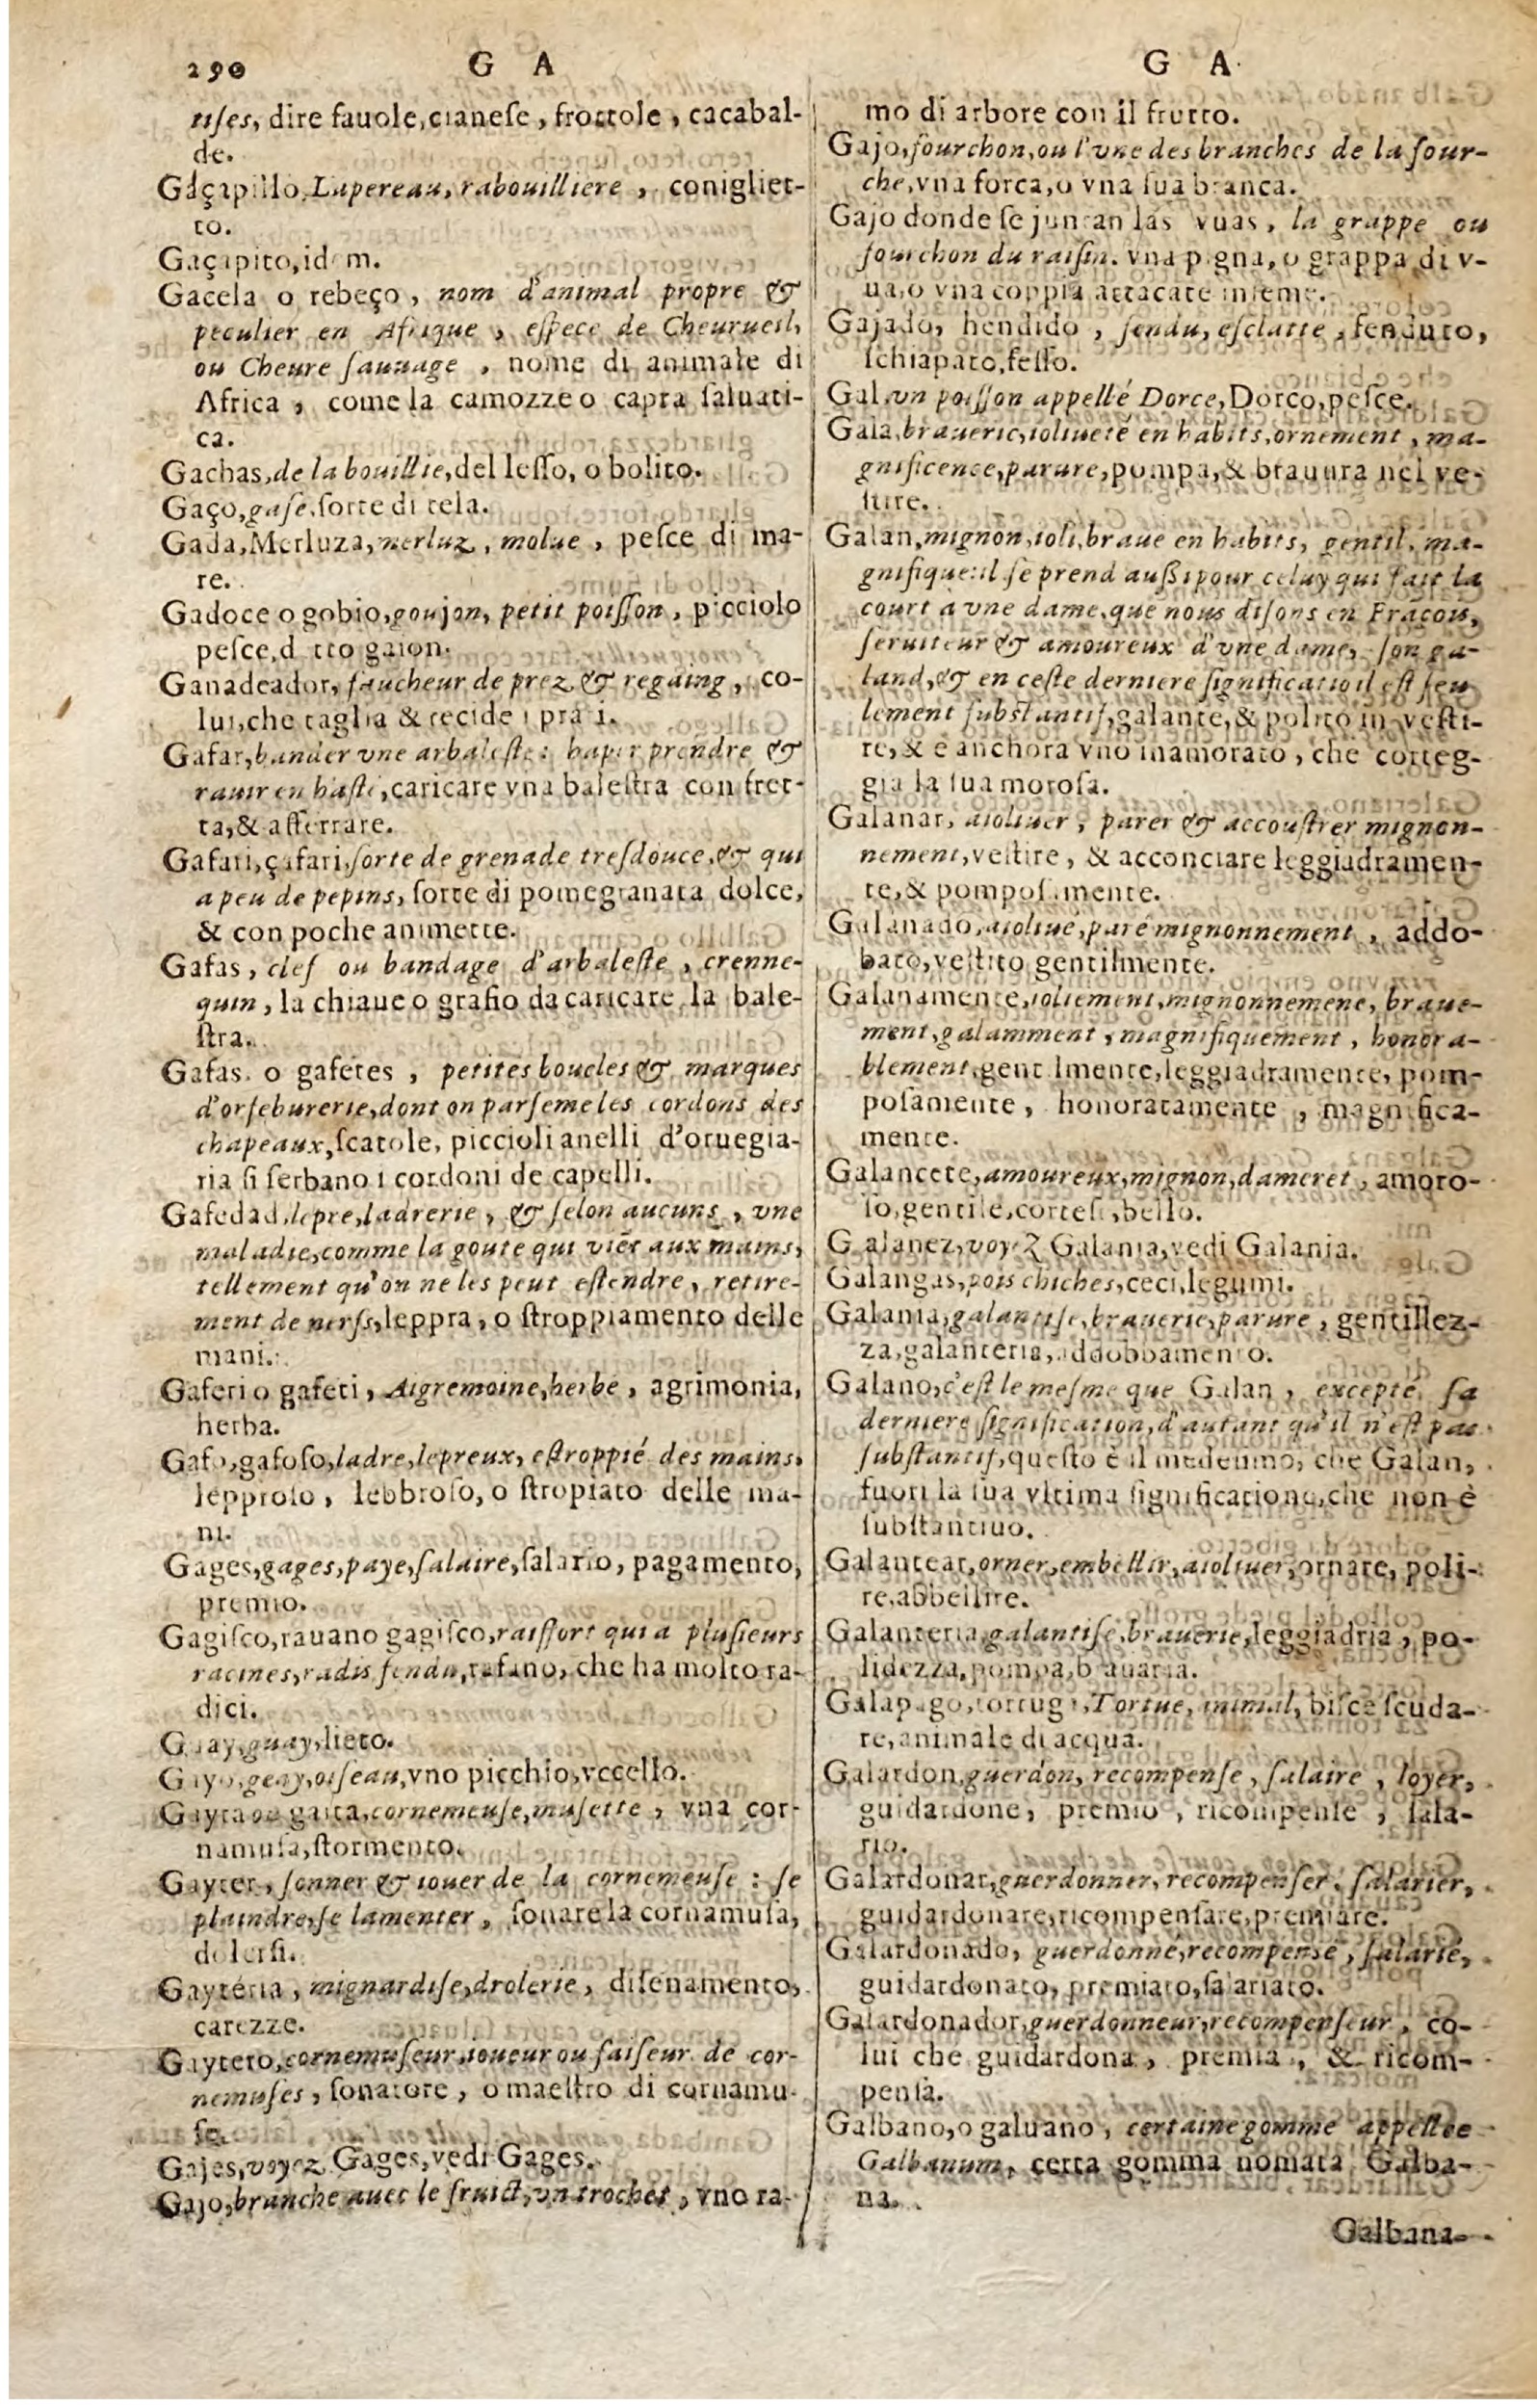 290 G A
tises, dire fauole, cianese, frottole, cacabal-
de.
Gaçapillo, Lapereau, rabouilliere, conigliet-
to.
Gaçapito, idem.
Gacela o rebeço, nom d'animal propre &
peculier en Afrique, espece de Cheurueil,
ou Cheure sauuage, nome di animale di
Africa, come la camozze o capra saluati-
ca.
Gachas, de la bouillie, del lesso, o bolito.
Gaço, gase, sorte di tela.
Gada, Merluza, merluz, molue, pesce di ma-
re.
Gadoce o gobio, goujon, petit poisson, picciolo
pesce, detto gaion.
Ganadeador, faucheur de prez & regaing, co-
lui, che taglia & recide i prati.
Gafar, bander vne arbaleste: haper prendre &
rauir en haste, caricare vna balestra con fret-
ta, & afferrare.
Gafari, çafari, sorte de grenade tresdouce, & qui
a peu de pepins, sorte di pomegranata dolce,
& con poche animette.
Gafas, clef ou bandage d'arbaleste, crenne-
quin, la chiaue o grafio da caricare la bale-
stra.
Gafas o gafetes, petites boucles & marques
d'orfeburerie, dont on parseme les cordons des
chapeaux, scatole, piccioli anelli d'oruegia-
ria si serbano i cordoni de capelli.
Gafedad, lepre, ladrerie, & selon aucuns, vne
maladie, comme la goute qui viēt aux mains,
tellement qu'on ne les peut estendre, retire-
ment de nerfs, leppra, o stroppiamento delle
mani.
Gaferi o gafeti, Aigremoine, herbe, agrimonia,
herba.
Gafo, gafoso, ladre, lepreux, estroppié des mains,
lepproso, lebbroso, o stropiato delle ma-
ni.
Gages, gages, paye, salaire, salario, pagamento,
premio.
Gagisco, rauano gagisco, raiffort qui a plusieurs
racines, radis fendu, rafano, che ha molto ra-
dici.
Guay, guay, lieto.
Gayo, geay, oiseau, vno picchio, vccello.
Gayta ou gaita, cornemeuse, musette, vna cor-
namusa, stormento.
Gayter, sonner & iouer de la cornemeuse: se
plaindre, se lamenter, sonare la cornamusa,
dolersi.
Gayteria, mignardise, drolerie, disenamento,
carezze.
Gaytero, cornemuseur, ioueur ou faiseur de cor-
nemuses, sonatore, o maestro di cornamu-
se.
Gajes, voyez Gages, vedi Gages.
Gajo, branche auec le fruict, vn trochet, vno ra-
G A
mo di arbore con il frutto.
Gajo, fourchon, ou l'vne des branches de la four-
che, vna forca, o vna sua branca.
Gajo donde se juntan las vuas, la grappe ou
fourchon du raisin. vna pigna, o grappa di v-
ua, o vna coppia attacate insieme.
Gajado, hendido, fendu, esclatté, fenduto,
schiapato, fesso.
Gal, vn poisson appellé Dorce, Dorco, pesce.
Gala, brauerie, ioliueté en habits, ornement, ma-
gnificence, parure, pompa, & brauura nel ve-
stire.
Galan, mignon, ioli, braue en habits, gentil, ma-
gnifique: il se prend aussi pour celuy qui fait la
court à vne dame, que nous disons en Fraçois,
seruiteur & amoureux d'vne dame, son ga-
land, & en ceste derniere significatio il est seu
lement substantif, galante, & polito in vesti-
re, & e anchora vno inamorato, che corteg-
gia la sua morosa.
Galanar, aioliuer, parer & accoustrer mignon-
nement, vestire, & acconciare leggiadramen-
te, & pomposamente.
Galanado, aioliué, paré mignonnement, addo-
bato, vestito gentilmente.
Galanamente, ioliement, mignonnemene, braue-
ment, galamment, magnifiquement, honora-
blement, gentilmente, leggiadramente, pom-
posamente, honoratamente, magnifica-
mente.
Galancete, amoureux, mignon, dameret, amoro-
so, gentile, cortese, bello.
Galanez, voyez Galania, vedi Galania.
Galangas, pois chiches, ceci, legumi.
Galania, galantise, brauerie, parure, gentillez-
za, galanteria, addobbamento.
Galano, c'est le mesme que Galan, excepté sa
derniere signification, d'autant qu'il n'est pas
substantif, questo è il medesimo, che Galan,
fuori la sua vltima significatione, che non è
substantiuo.
Galantear, orner, embellir, aioliuer, ornare, poli-
re, abbellire.
Galanteria, galantise, brauerie, leggiadria, po-
lidezza, pompa, brauaria.
Galapago, tortuga, Tortue, animal, bisce scuda-
re, animale di acqua.
Galardon, guerdon, recompense, salaire, loyer,
guidardone, premio, ricompense, sala-
rio.
Galardonar, guerdonner, recompenser, salarier,
guidardonare, ricompensare, premiare.
Galardonado, guerdonné, recompensé, salarié,
guidardonato, premiato, salariato.
Galardonador, guerdonneur, recompenseur, co-
lui che guidardona, premia, & ricom-
pensa.
Galbano, o galuano, certaine gomme appellee
Galbanum, certa gomma nomata Galba-
na.
Galbana-